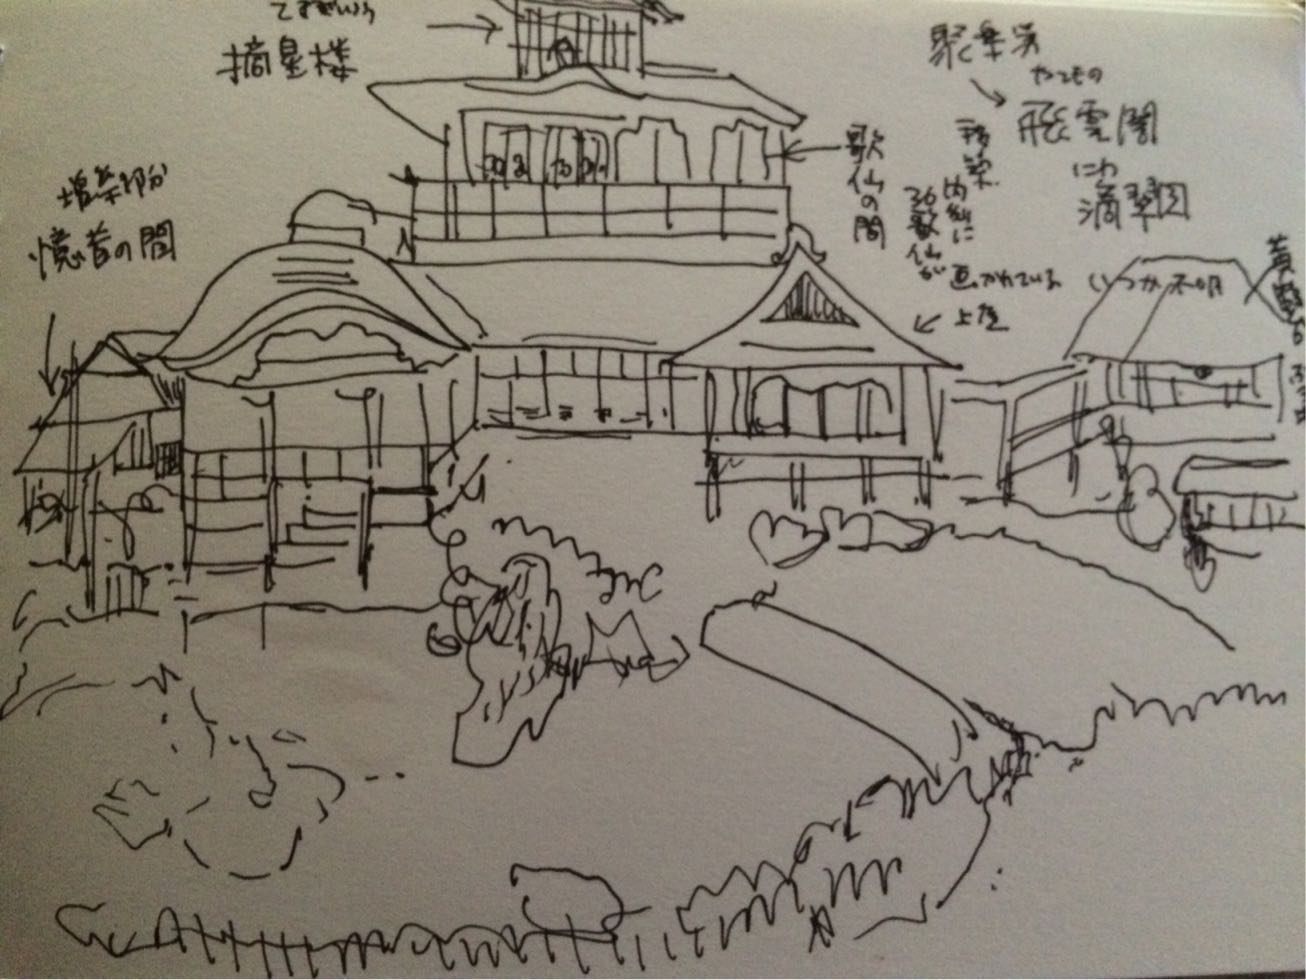 てきせいろう
摘星楼
増築部分
憶昔の間
歌仙の間
聚楽第
飛雲閣
にわ
滴翠園
移築
内部に
36歌仙が
画かれている
いつか不明
上座
黄鶴台